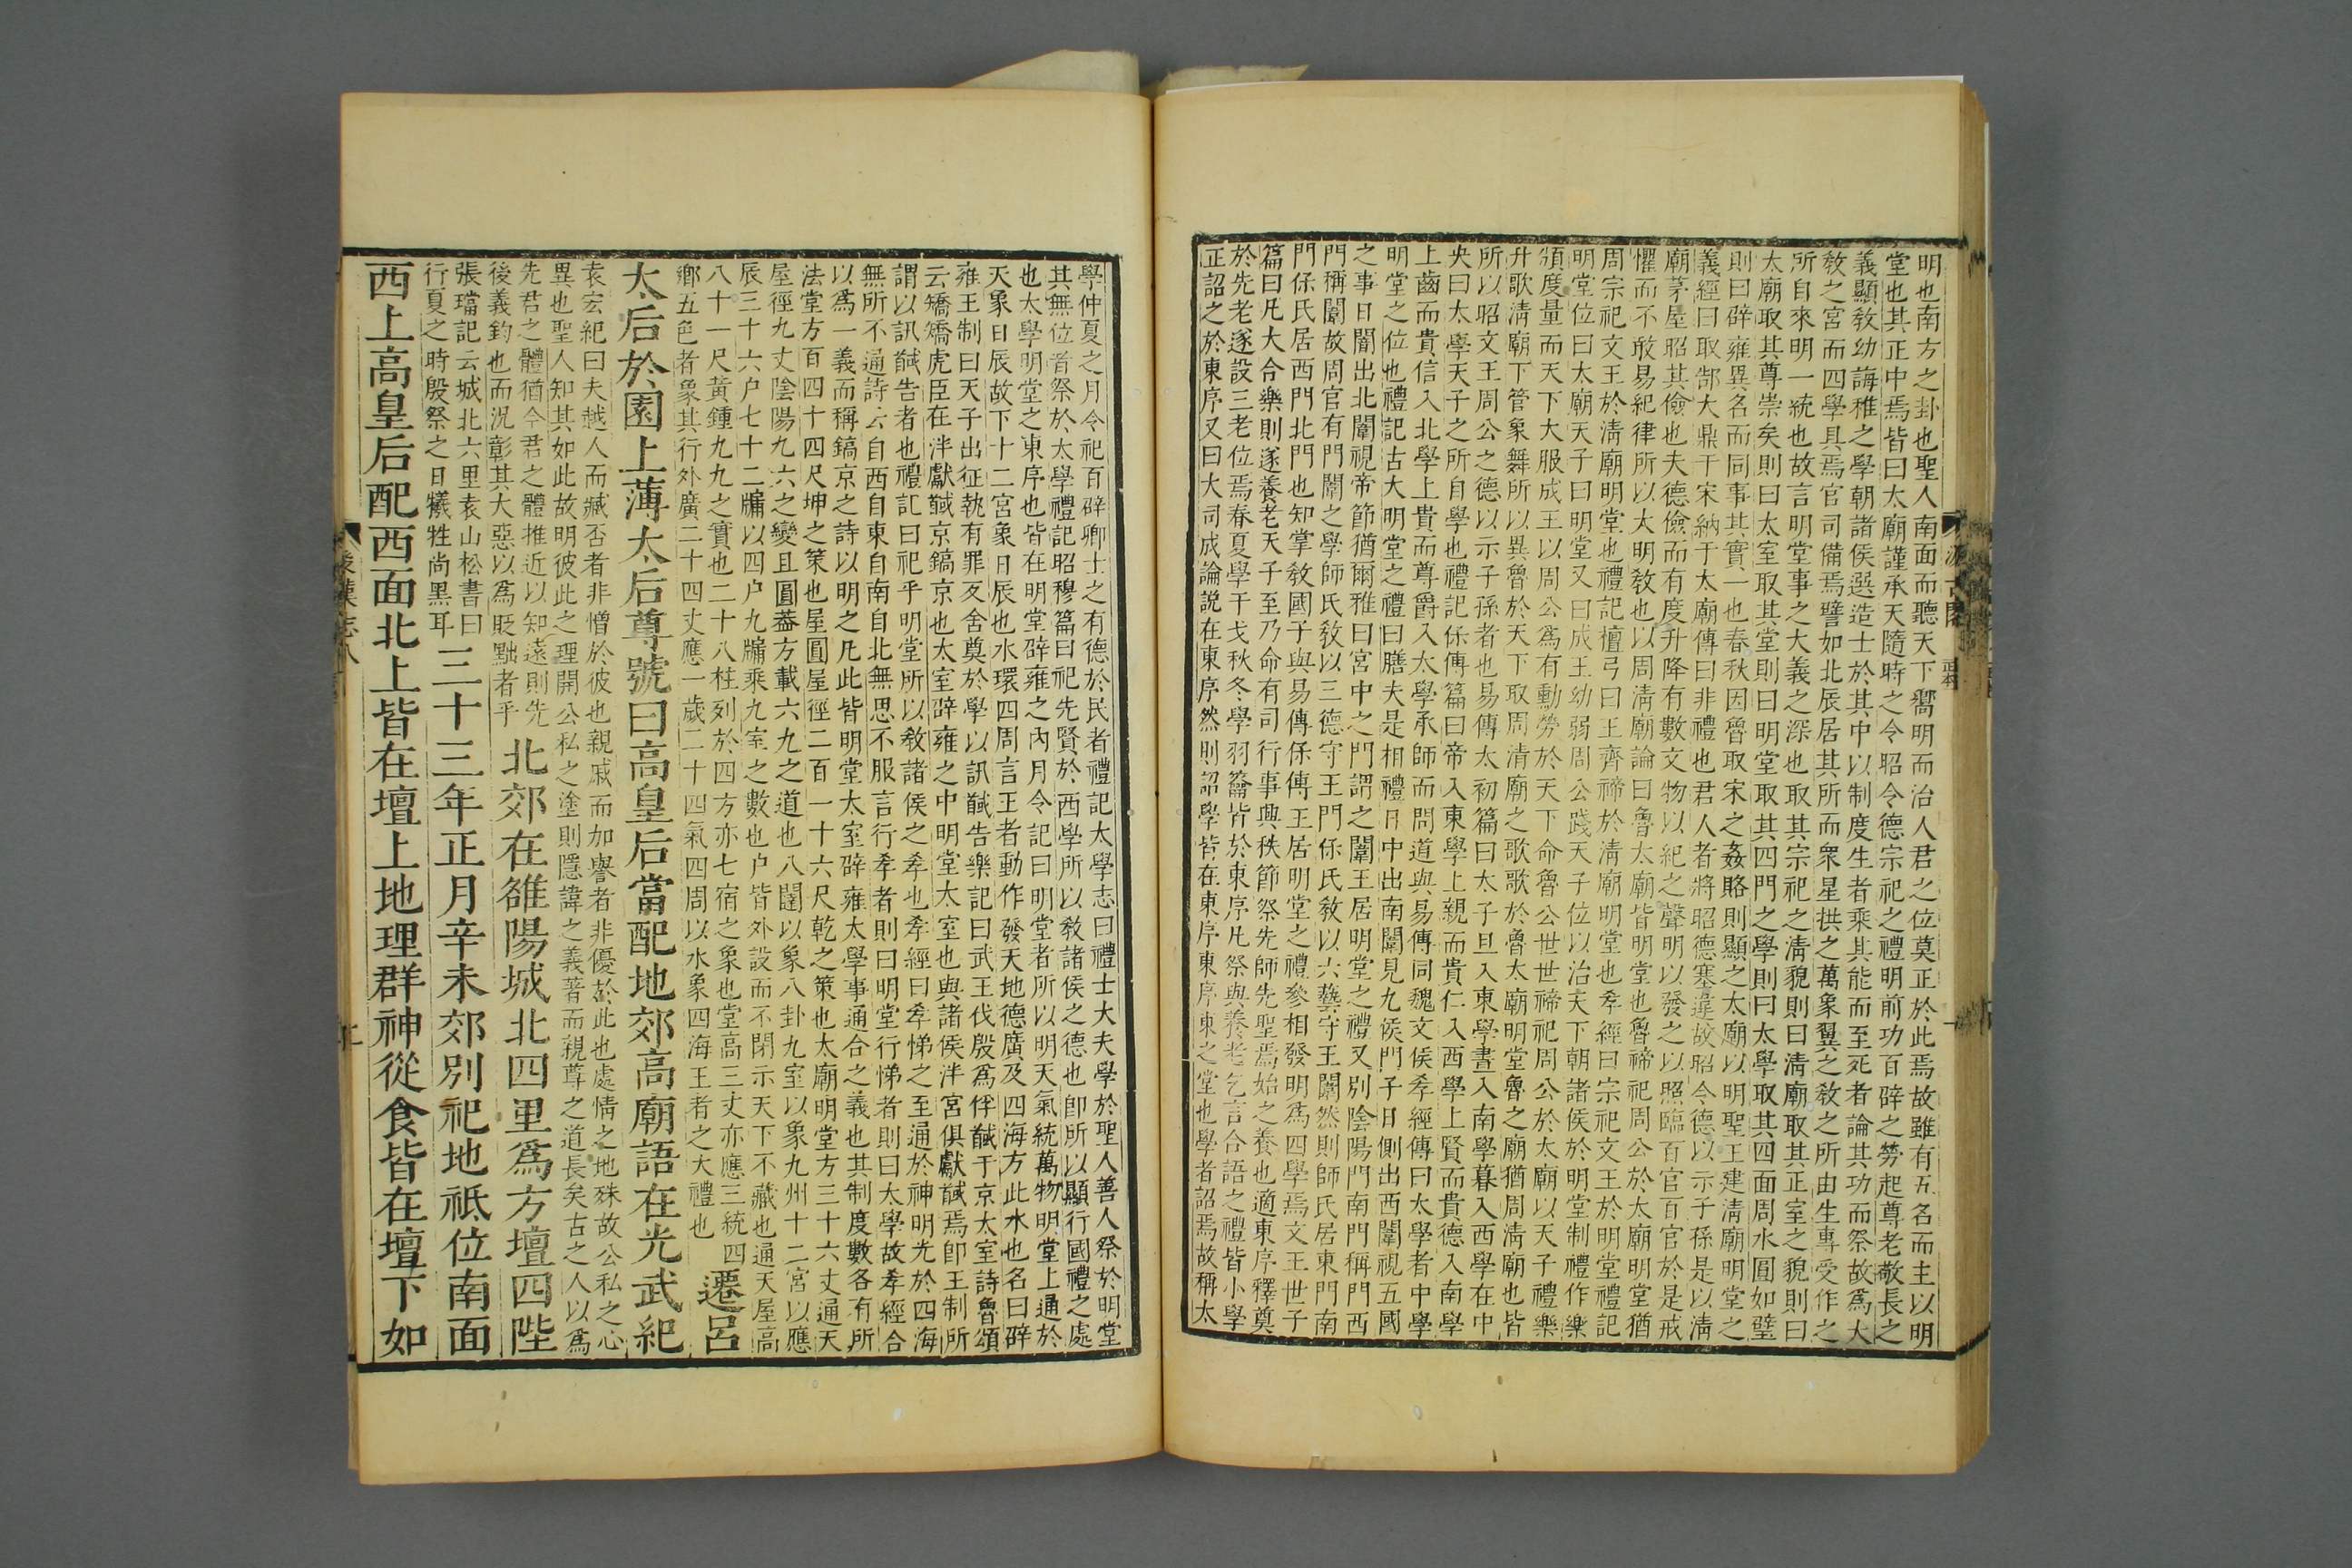 明也南方之卦也聖人南面而聽天下嚮明而治人君之位莫正於此焉故雖有五名而主以明
堂也其正中焉皆曰太廟謹承天隨時之令昭令德宗祀之禮明前功百辟之勞起尊老敬長之
義顯敎幼誨稚之學朝諸侯選造士於其中以制度生者乘其能而至死者論其功而祭故爲大
敎之宮而四學具焉官司備焉譬如北辰居其所而衆星拱之萬象翼之敎之所由生專受作之
所自來明一統也故言明堂事之大義之深也取其宗祀之淸貌則曰淸廟取其正室之貌則曰
太廟取其尊崇矣則曰太室取其堂則曰明堂取其四門之學則曰太學取其四面周水圓如璧
則曰辟雍異名而同事其實一也春秋因魯取宋之姦賂則顯之太廟以明聖王建淸廟明堂之
義經曰取郜大鼎于宋納于太廟傳曰非禮也君人者將昭德塞違故昭令德以示子孫是以淸
廟茅屋昭其儉也夫德儉而有度升降有數文物以紀之聲明以發之以照臨百官百官於是戒
懼而不敢易紀律所以大明敎也以周淸廟論曰魯太廟皆明堂也魯禘祀周公於太廟明堂猶
周宗祀文王於淸廟明堂也禮記檀弓曰王齊禘於淸廟明堂也孝經曰宗祀文王於明堂禮記
明堂位曰太廟天子曰明堂又曰成王幼弱周公踐天子位以治天下朝諸侯於明堂制禮作樂
頒度量而天下大服成王以周公爲有勳勞於天下命魯公世世禘祀周公於太廟以天子禮樂
升歌淸廟下管象舞所以異魯於天下取周淸廟之歌歌於魯太廟明堂魯之廟猶周淸廟也皆
所以昭文王周公之德以示子孫者也易傳太初篇曰太子旦入東學晝入南學暮入西學在中
央曰太學天子之所自學也禮記保傅篇曰帝入東學上親而貴仁入西學上賢而貴德入南學
上齒而貴信入北學上貴而尊爵入太學承師而問道與易傳同魏文侯孝經傳曰太學者中學
明堂之位也禮記古大明堂之禮曰膳夫是相禮日中出南闈見九侯門子日側出西闈視五國
之事日闇出北闈視帝節猶爾雅曰宮中之門謂之闈王居明堂之禮又別陰陽門南門稱門西
門稱闈故周官有門闈之學師氏敎以三德守王門保氏敎以六藝守王闈然則師氏居東門南
門保氏居西門北門也知掌敎國子與易傳保傅王居明堂之禮參相發明爲四學焉文王世子
篇曰凡大合樂則遂養老天子至乃命有司行事興秩節祭先師先聖焉始之養也適東序釋奠
於先老遂設三老位焉春夏學干戈秋冬學羽籥皆於東序凡祭與養老乞言合語之禮皆小學
正詔之於東序又曰大司成論說在東序然則詔學皆在東序東序東之堂也學者詔焉故稱太
學仲夏之月令祀百辟卿士之有德於民者禮記太學志曰禮士大夫學於聖人善人祭於明堂
其無位者祭於太學禮記昭穆篇曰祀先賢於西學所以敎諸侯之德也卽所以顯行國禮之處
也太學明堂之東序也皆在明堂辟雍之內月令記曰明堂者所以明天氣統萬物明堂上通於
天象日辰故下十二宮象日辰也水環四周言王者動作發天地德廣及四海方此水也名曰辟
雍王制曰天子出征執有罪反舍奠於學以訊馘告樂記曰武王伐殷爲俘馘于京太室詩魯頌
云矯矯虎臣在泮獻馘京鎬京也太室辟雍之中明堂太室也與諸侯泮宮俱獻馘焉卽王制所
謂以訊馘告者也禮記曰祀乎明堂所以敎諸侯之孝也孝經曰孝悌之至通於神明光於四海
無所不通詩云自西自東自南自北無思不服言行孝者則曰明堂行悌者則曰太學故孝經合
以爲一義而稱鎬京之詩以明之凡此皆明堂太室辟雍太學事通合之義也其制度數各有所
法堂方百四十四尺坤之策也屋圓屋徑二百一十六尺乾之策也太廟明堂方三十六丈通天
屋徑九丈陰陽九六之變且圓蓋方載六九之道也八闥以象八卦九室以象九州十二宮以應
辰三十六戶七十二牖以四戶九牖乘九室之數也戶皆外設而不閉示天下不藏也通天屋高
八十一尺黃鍾九九之實也二十八柱列於四方亦七宿之象也堂高三丈亦應三統四
鄕五色者象其行外廣二十四丈應一歲二十四氣四周以水象四海王者之大禮也 遷呂
太后於園上薄太后尊號曰高皇后當配地郊高廟語在光武紀
袁宏紀曰夫越人而臧否者非憎於彼也親戚而加譽者非優於此也處情之地殊故公私之心
異也聖人知其如此故明彼此之理開公私之塗則隱諱之義著而親尊之道長矣古之人以爲
先君之體猶今君之體推近以知遠則先
後義鈞也而況彰其大惡以爲貶黜者乎 北郊在雒陽城北四里爲方壇四陛
張璠記云城北六里袁山松書曰
行夏之時殷祭之日犧牲尙黑耳 三十三年正月辛未郊別祀地祇位南面
西上高皇后配西面北上皆在壇上地理群神從食皆在壇下如
後漢志八